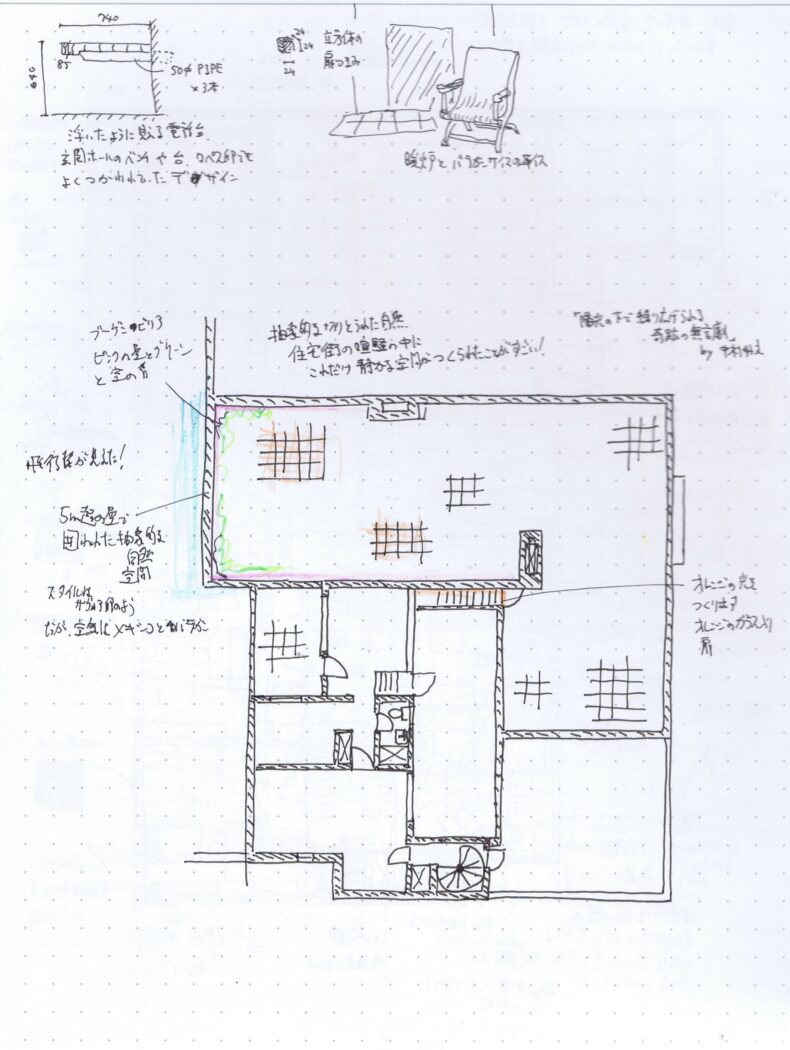 240
640
85
50φ PIPE
×3本
浮いたように見える電話台、
玄関ホールのベンチや台、ロペス邸でも
よくつかわれていたデザイン
24
24
24
立方体の
扉つまみ
暖炉とバラガンサイズの平イス
ブーゲンビリア
ピンクの壁とグリーン
と空の青
抽象的な切りとられた自然
住宅街の喧騒の中に
これだけ静かな空間がつくられたことがすごい!
「陽光の下で繰り広げられる
奇跡の無言劇」
by 中村
飛行機が見えた!
5m超の壁で
囲われた抽象的な
自然
空間
スタイルは
だが、空気はメキシコと
オレンジの光を
つくり出す
オレンジのガラス入り
扉